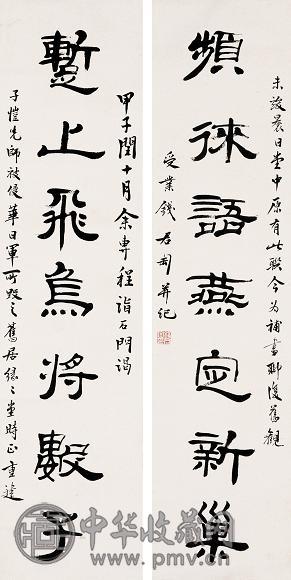 蹔止飛烏將數子
甲子閏十月余專程詣石門謁
子愷先師被侵華日軍所毀之舊居緣〻堂時正重建
頻徠語燕定新巢
未竣曩日堂中原有此聯今為補書聊復舊觀
受業錢君匋并紀
中华收藏网
www.pmv.cn